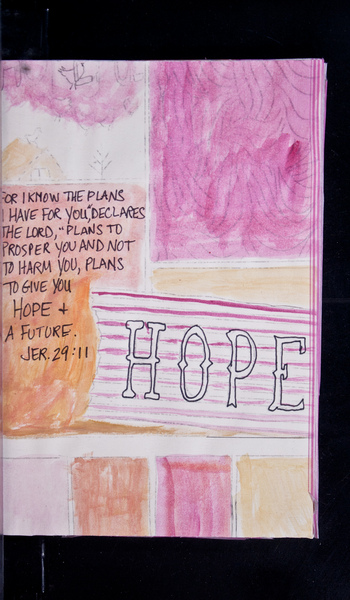 FOR I KNOW THE PLANS
I HAVE FOR YOU," DECLARES
THE LORD, "PLANS TO
PROSPER YOU AND NOT
TO HARM YOU, PLANS
TO GIVE YOU
HOPE +
A FUTURE.
JER. 29:11
HOPE